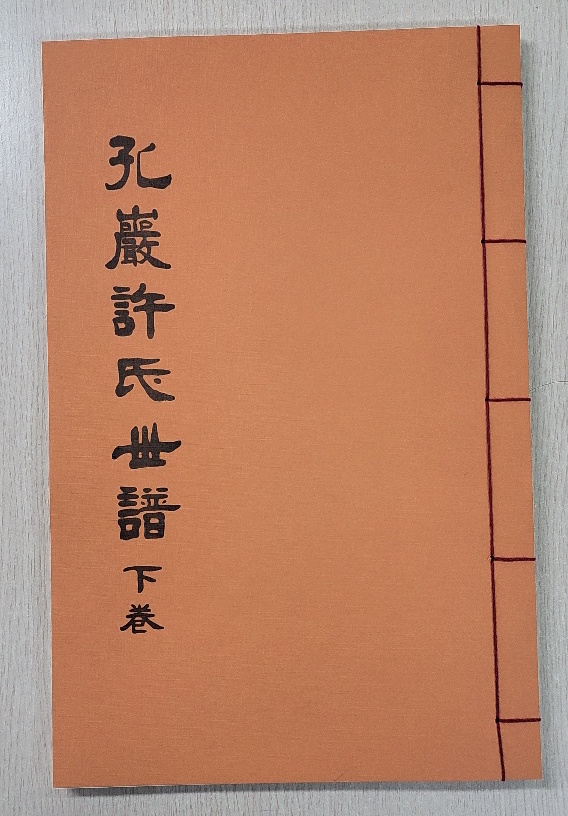 孔巖許氏世譜 下卷